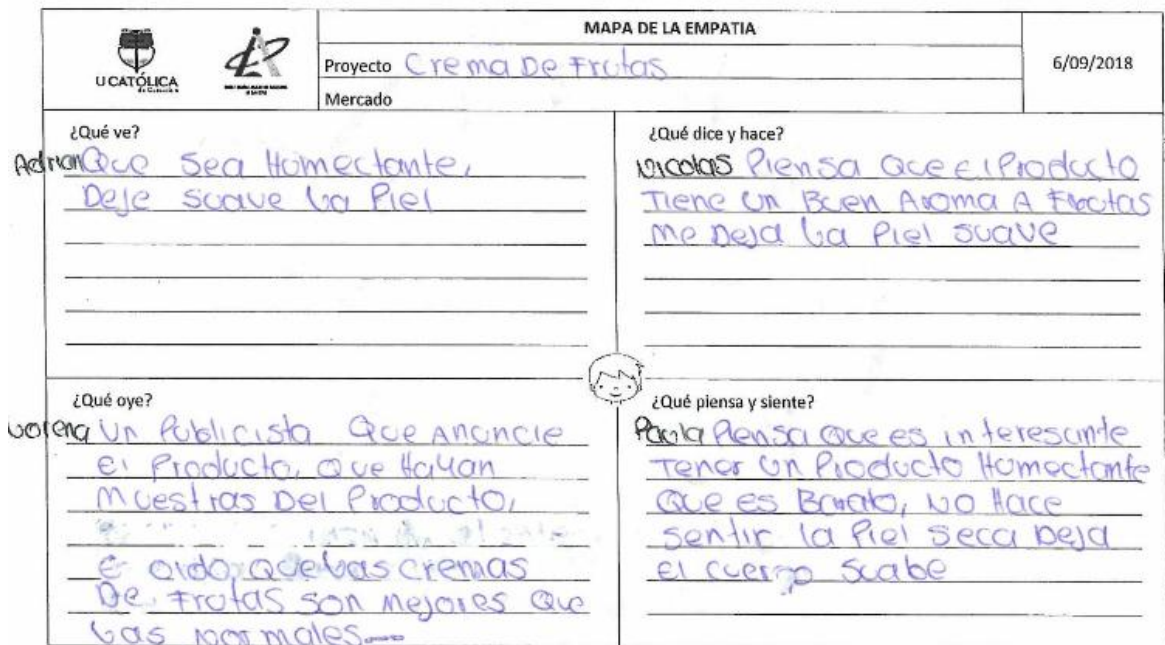 MAPA DE LA EMPATIA
U CATÓLICA
Proyecto Crema De Frutas
6/09/2018
Mercado
¿Qué ve?
Adrian Que Sea Humectante,
Deje suave la Piel
¿Qué dice y hace?
Nicolas Piensa Que El Producto
Tiene Un Buen Aroma A Frutas
Me Deja La Piel Suave
¿Qué oye?
Lorena Un Publicista Que Anuncie
El Producto, Que Hayan
Muestras Del Producto,
E oido, que las cremas
De Frutas son Mejores Que
Las Normales
¿Qué piensa y siente?
Paola Piensa Que es interesante
Tener Un Producto Humectante
Que es Barato, No Hace
Sentir la Piel Seca Deja
el cuerpo Suabe